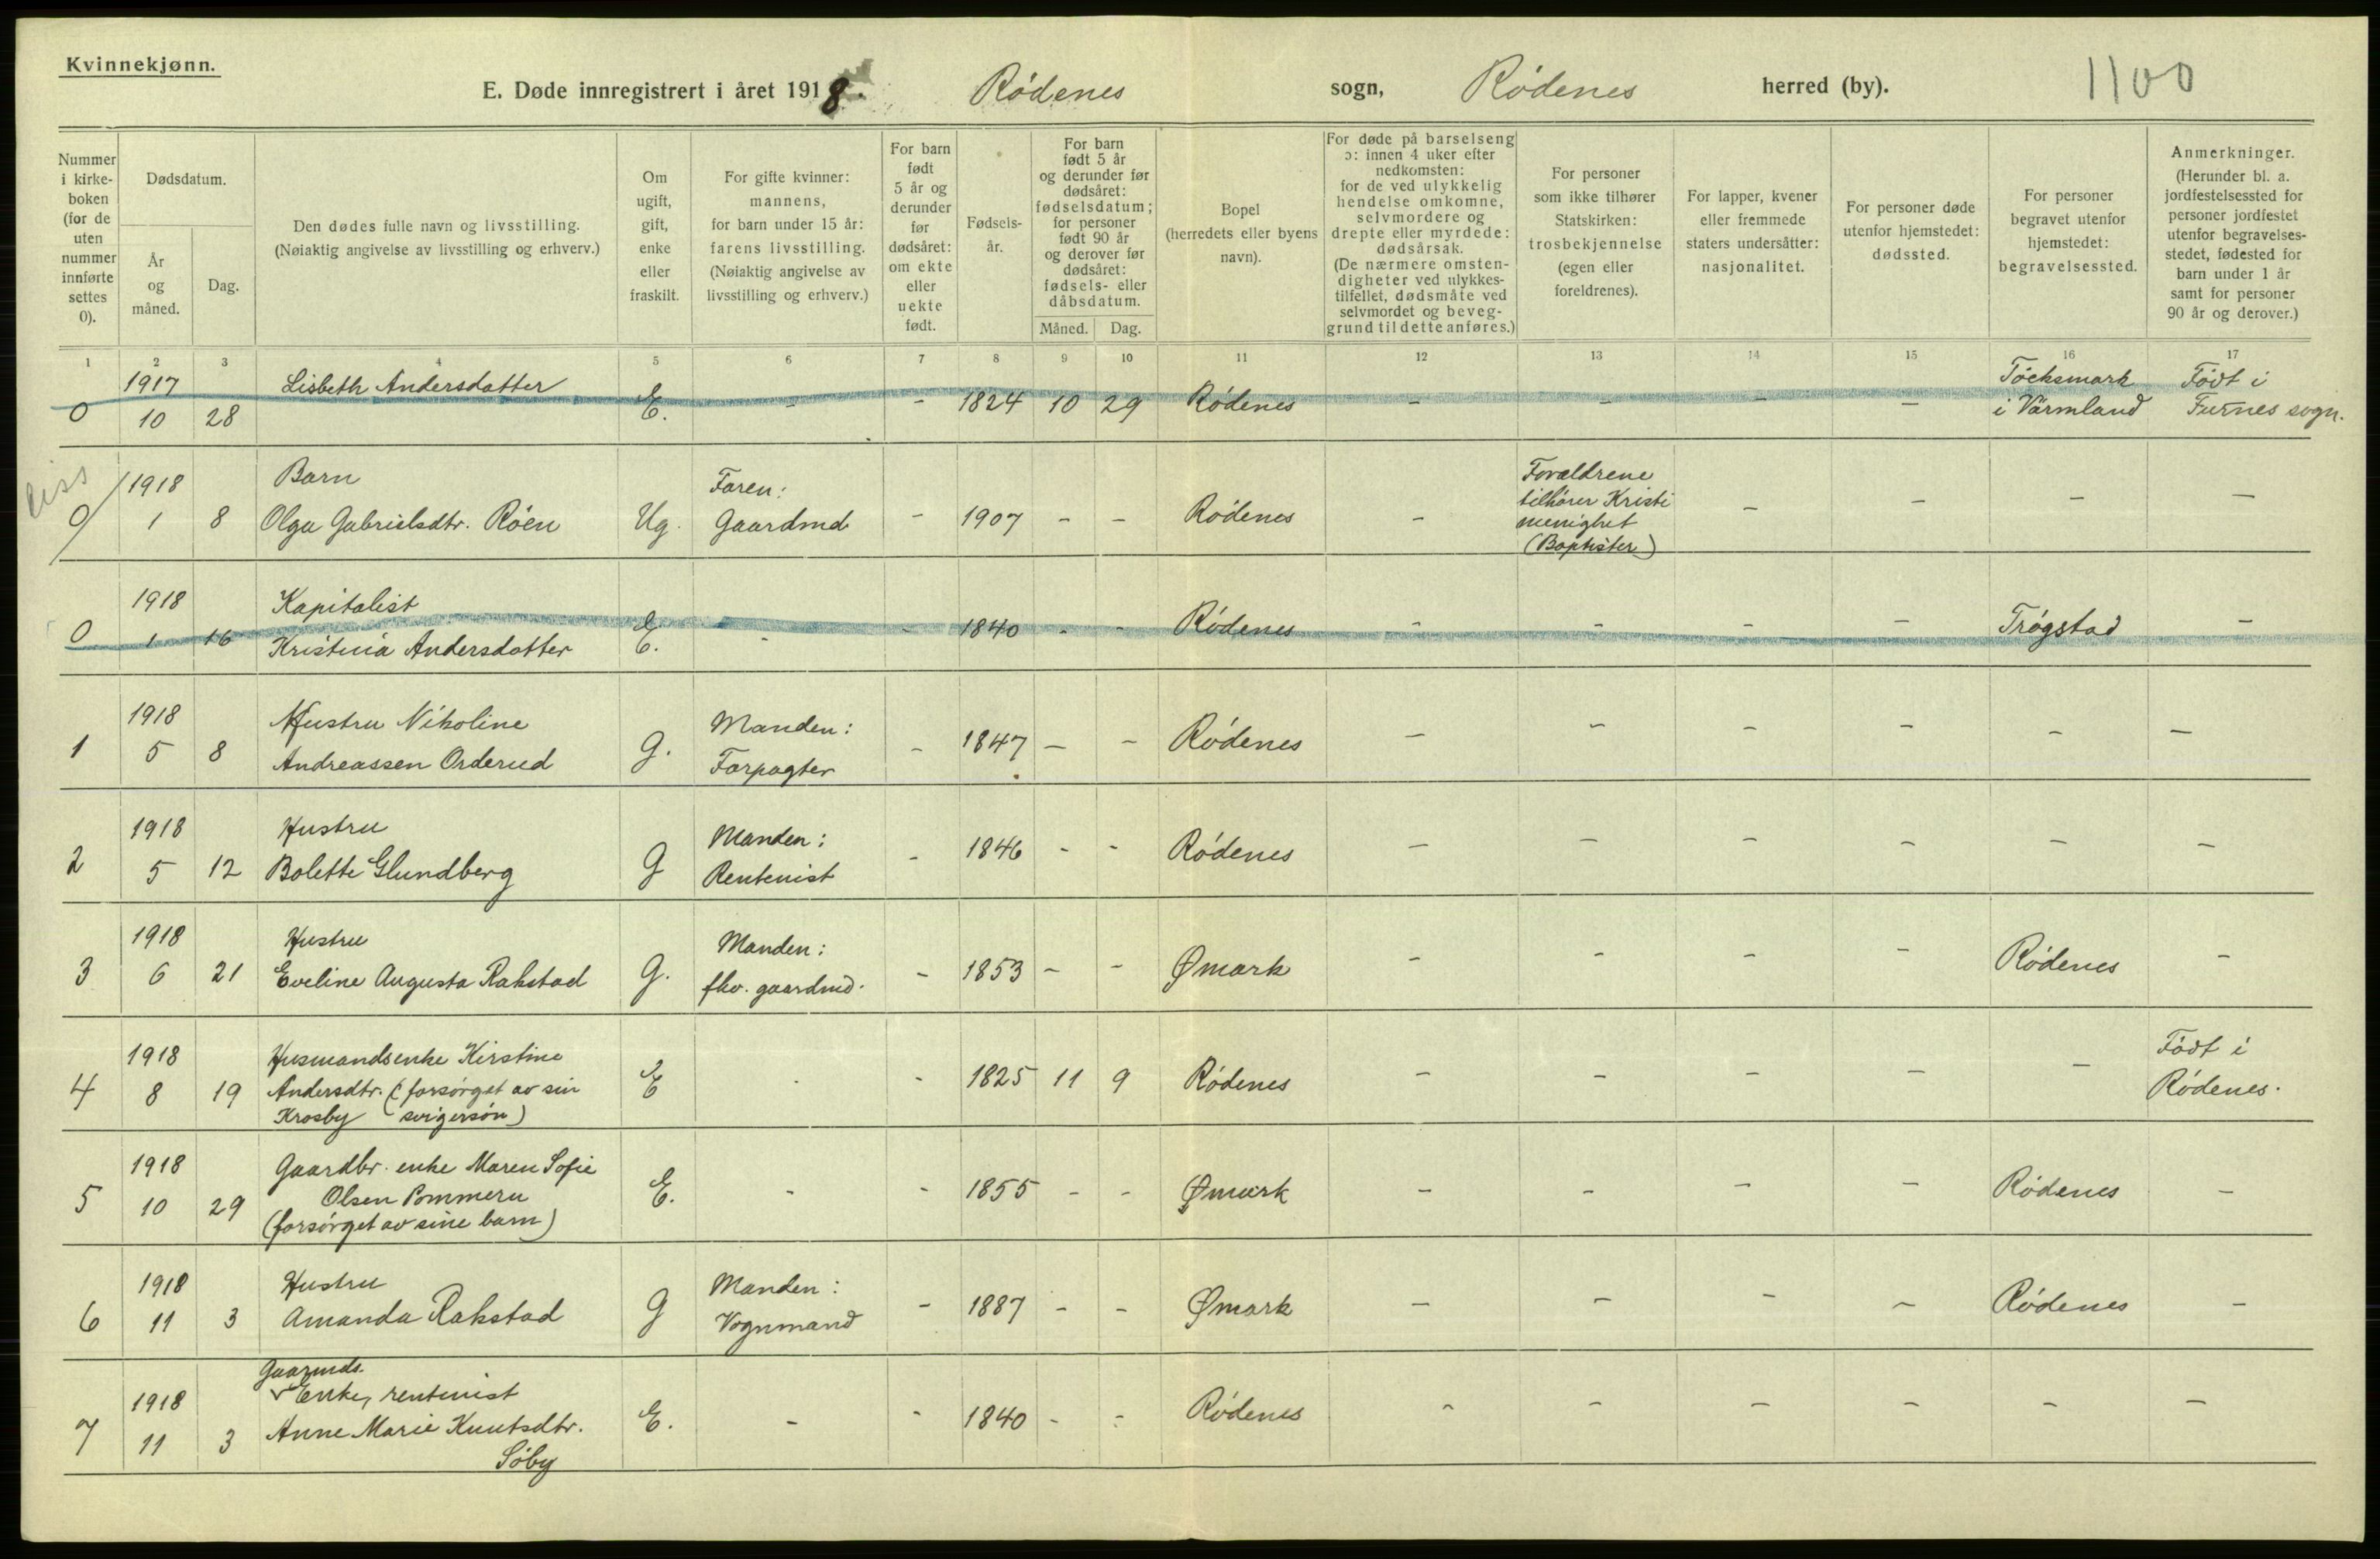 Kvinnekjønn.
E. Døde innregistrert i året 1918. Rödenes sogn, Rödenes herred (by). 1100
Nummer i kirke-boken (for de uten nummer innførte settes 0).
Dødsdatum.
År og måned.
Dag.
Den dødes fulle navn og livsstilling.
(Nøiaktig angivelse av livsstilling og erhverv.)
Om ugift, gift, enke eller fraskilt.
For gifte kvinner: mannens, for barn under 15 år: farens livsstilling. (Nøiaktig angivelse av livsstilling og erhverv.)
For barn født 5 år og derunder før dødsåret: om ekte eller uekte født.
Fødsels-år.
For barn født 5 år og derunder før dødsåret: fødselsdatum; for personer født 90 år og derover før dødsåret: fødsels- eller dåbsdatum.
Måned. Dag.
Bopel (herredets eller byens navn).
For døde på barselseng ɔ: innen 4 uker efter nedkomsten: for de ved ulykkelig hendelse omkomne, selvmordere og drepte eller myrdede: dødsårsak. (De nærmere omsten-digheter ved ulykkes-tilfellet, dødsmåte ved selvmordet og beveg-grund til dette anføres.)
For personer som ikke tilhører Statskirken: trosbekjennelse (egen eller foreldrenes).
For lapper, kvener eller fremmede staters undersåtter: nasjonalitet.
For personer døde utenfor hjemstedet: dødssted.
For personer begravet utenfor hjemstedet: begravelsessted.
Anmerkninger. (Herunder bl. a. jordfestelsessted for personer jordfestet utenfor begravelses-stedet, fødested for barn under 1 år samt for personer 90 år og derover.)
1 2 3 4 5 6 7 8 9 10 11 12 13 14 15 16 17
1917 Lisbeth Andersdatter Töcksmark Födt i
0 10 28 E. - - 1824 10 29 Rödenes - - - - i Värmland Furnes sogn.
diss
1918 Barn Faren: Forældrene
tilhører Kristi
0 1 8 Olga Gabrielsdtr. Röen Ug. Gaardmd - 1907 - - Rödenes - menighet - - - -
(Baptister)
1918 Kapitalist
0 1 16 Kristina Andersdatter E. - - 1840 - - Rödenes - - - - Trögstad -
1918 Hustru Nikoline Manden:
1 5 8 Andreassen Orderud g. Forpagter - 1847 - - Rödenes - - - - - -
1918 Hustru Manden:
2 5 12 Bolette Glundberg g Rentenist - 1846 - - Rödenes - - - - - -
1918 Hustru Manden:
3 6 21 Eveline Augusta Rakstad g. fhv. gaardmd. - 1853 - - Ømark - - - - Rödenes -
1918 Husmandsenke Kirstine Födt i
4 8 19 Andersdtr. (forsörget av sin E - - 1825 11 9 Rödenes - - - - - Rödenes.
Krosby svigersön)
1918 Gaardbr. enke Maren Sofie
5 10 29 Olsen Pommeru E. - - 1855 - - Ømark - - - - Rödenes -
(forsörget av sine barn)
1918 Hustru Manden:
6 11 3 Amanda Rakstad g Vognmand - 1887 - - Ømark - - - - Rödenes -
Gaarmds.
1918 Enke, rentenist
7 11 3 Anne Marie Knutsdtr. E. - - 1840 - - Rödenes - - - - - -
Söby